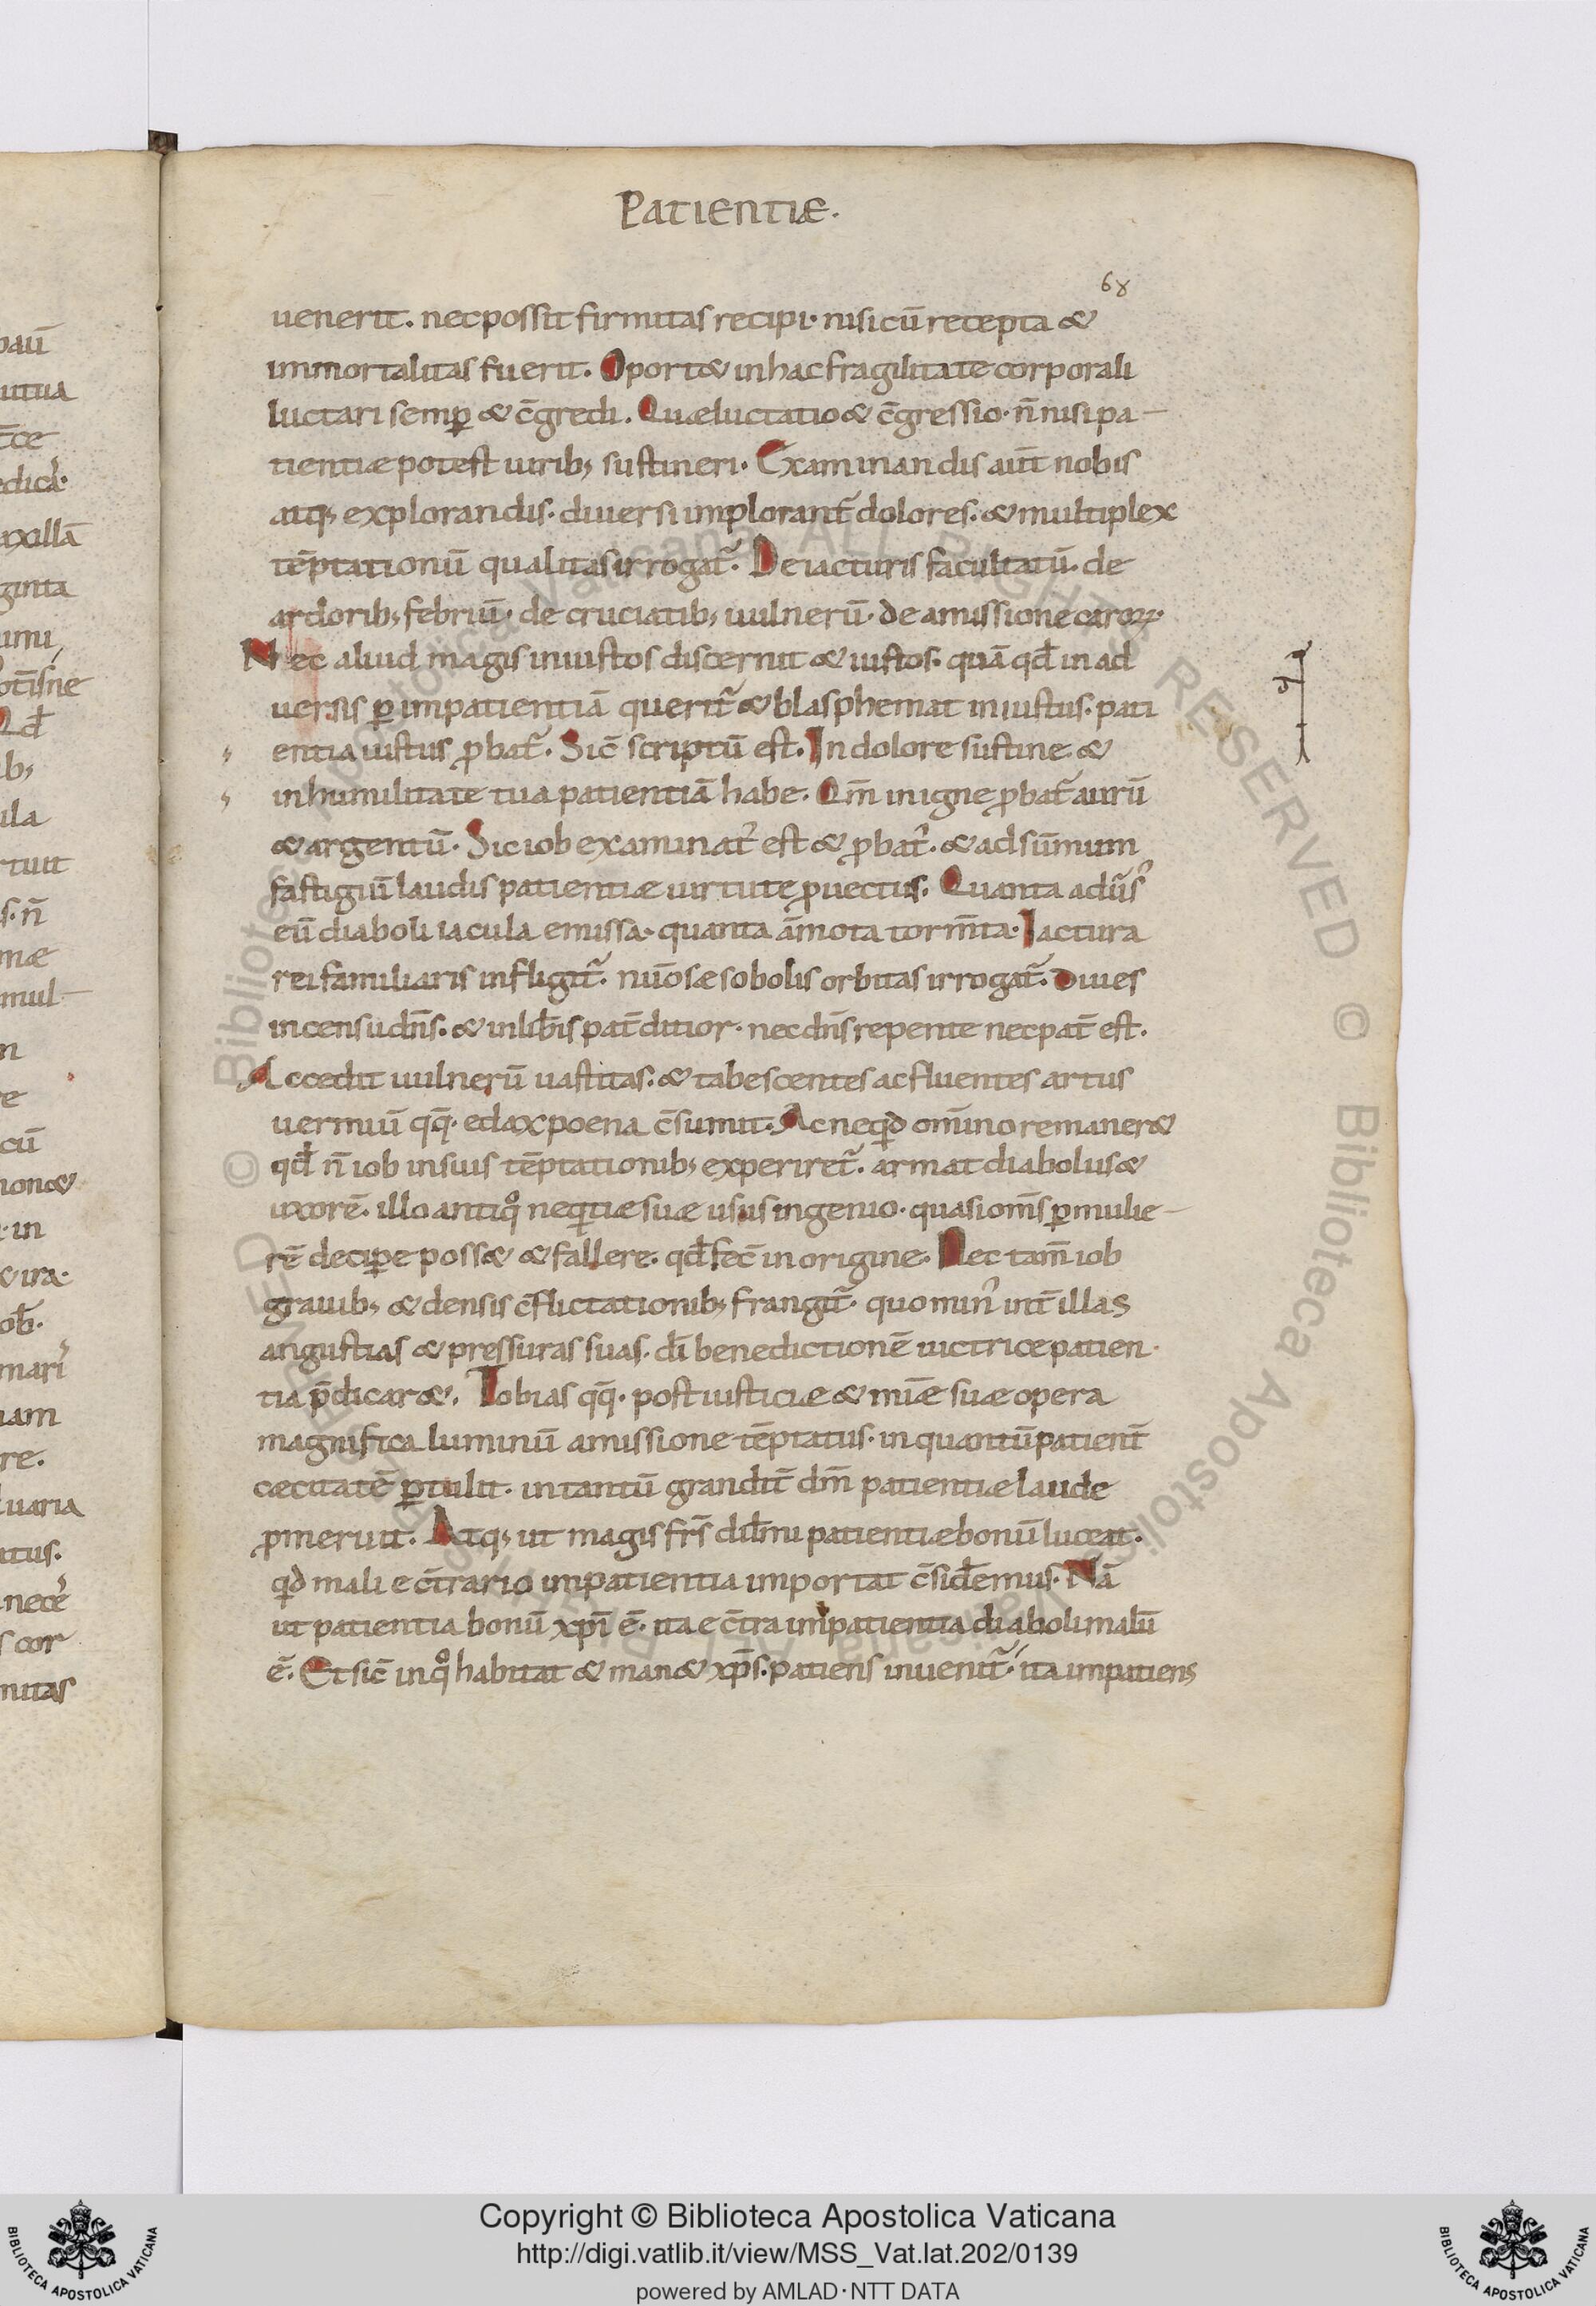 Patientiæ.
68
uenerit. nec possit firmitas recipi· nisi cū recepta &
immortalitas fuerit. Oport& in hac fragilitate corporali
luctari semꝑ & c̄gredi. Quæ luctatio & c̄gressio· n̄ nisi pa–
tientiæ potest uirib; sustineri. Examinandis aut̄ nobis
atq; explorandis· diuersi implorant᷑ dolores. & multiplex
tēptationū qualitas irrogat᷑. De iacturis facultatū· de
ardorib; febriū· de cruciatib; uulnerū· de amissione caroꝝ·
Nec aliud magis iniustos discernit & iustos· quā qđ in ad
uersis ꝑ impatientiā querit᷑ & blasphemat iniustus· pati
entia iustus ꝓbat᷑. Sic̄ scriptū est. In dolore sustine &
in humilitate tua patientiā habe. Qm̄ in igne ꝓbat᷑ aurū
& argentū. Sic iob examinat᷒ est & ꝓbat᷒. & ad sūmum
fastigiū laudis patientiæ uirtute ꝓuectus. Quanta adūs᷒
eū diaboli iacula emissa· quanta āmota torm̄ta. Iactura
rei familiaris infligit᷑. nūosæ sobolis orbitas irrogat᷑. Diues
in censu dn̄s. & in lib̄is pat̄ ditior. nec dn̄s repente nec pat̄ est.
Accedit uulnerū uastitas. & tabescentes ac fluentes artus
uermiū qq̄· edax poena c̄sumit. Ac neqͥd om̄ino remaner&
qđ n̄ iob in suis tēptationib; experiret᷑. armat diabolus &
uxorē. illo antiqͦ neqͥtiæ suæ usus ingenio· quasi om̄s ꝑ mulie–
rē deciꝑe poss& & fallere. qđ fec̄ in origine. Nec tam̄ iob
grauib; & densis c̄flictationib; frangit᷑. quo min᷒ int̄ illas
angustias & pressuras suas. dī benedictionē uictrice patien·
tia p̄dicar&. Tobias qq̄· post iusticiæ & mīæ suæ opera
magnifica luminū amissione tēptatus· in quantū patient̄
cæcitatē ꝑtulit. in tantū grandit̄ dm̄ patientiæ laude
ꝓmeruit. Atq; ut magis frs̄ dil̄mi patientiæ bonū luceat.
qͥd mali e c̄trario impatientia importat c̄siđemus. Nā
ut patientia bonū xp̄i ē. ita e c̄tra impatientia diaboli malū
ē. Et sic̄ in qͦ habitat & man& xp̄s. patiens inuenit᷑. ita impatiens
Copyright © Biblioteca Apostolica Vaticana
http://digi.vatlib.it/view/MSS_Vat.lat.202/0139
powered by AMLAD·NTT DATA
BIBLIOTECA APOSTOLICA VATICANA
BIBLIOTECA APOSTOLICA VATICANA